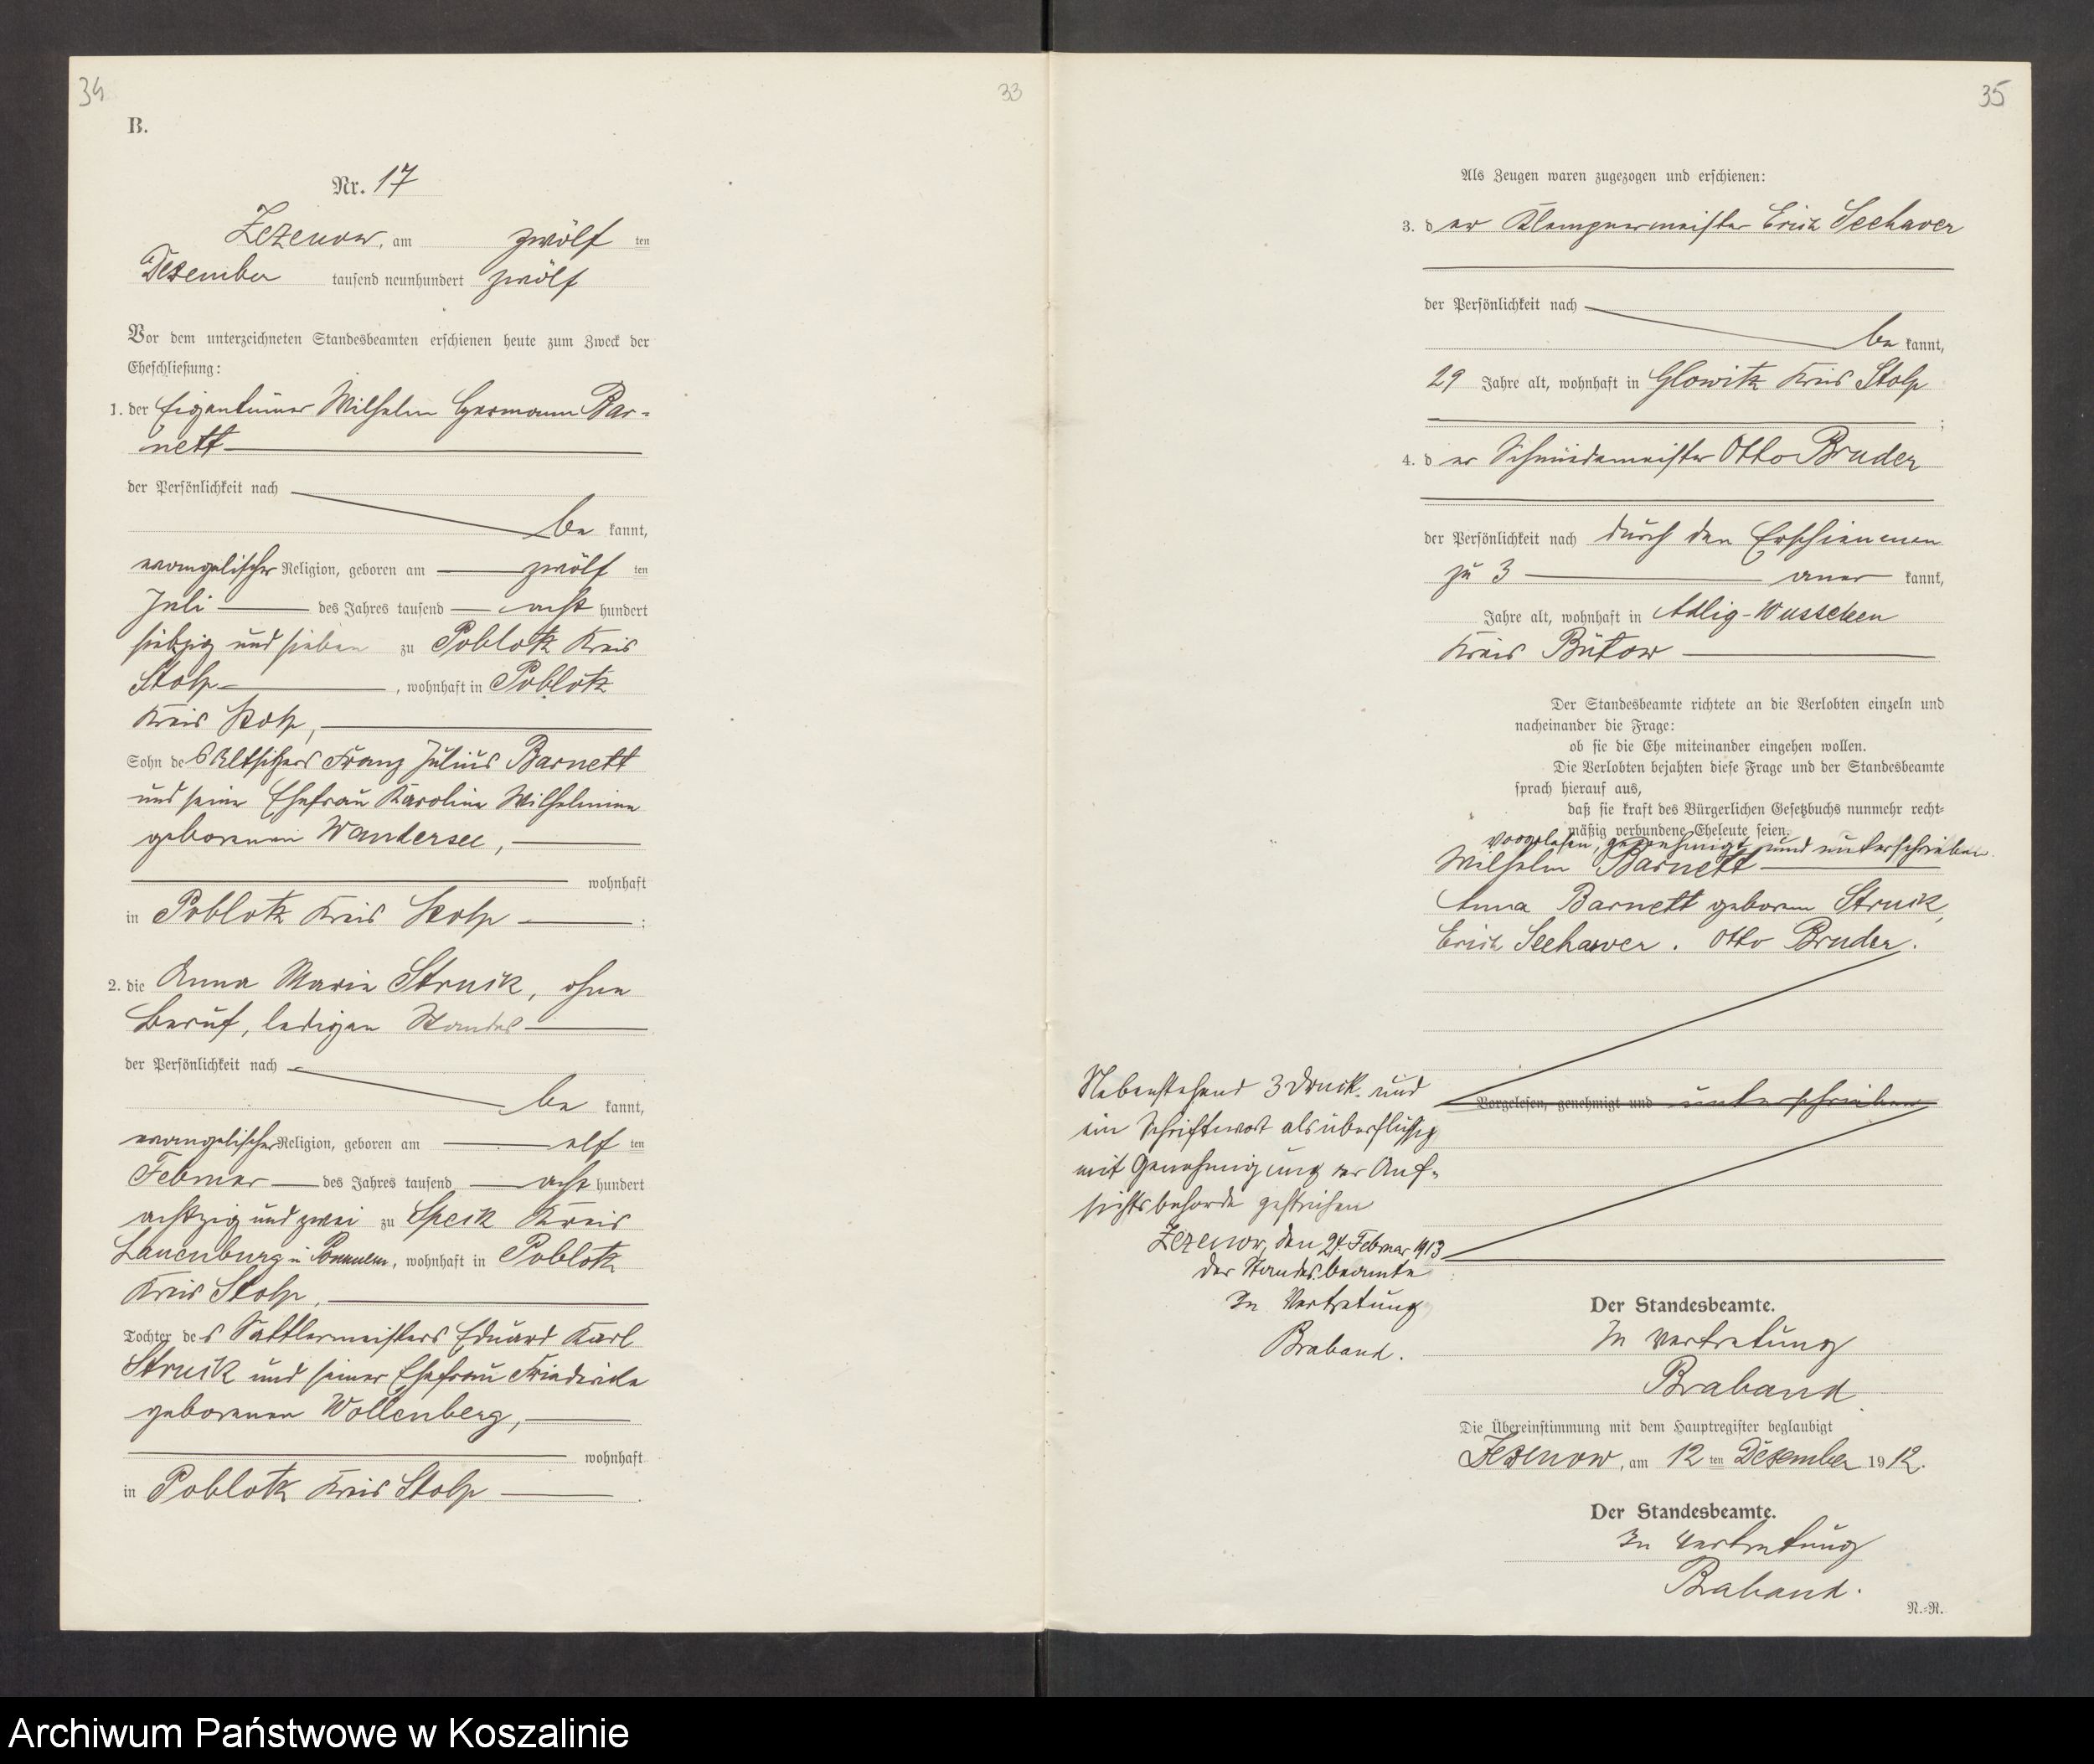 34
33
B.
Nr. 17
Zezenow, am zwölf ten
Dezember tausend neunhundert zwölf
Vor dem unterzeichneten Standesbeamten erschienen heute zum Zweck der
Eheschließung:
1. der Eigentümer Wilhelm Hermann Bar-
nett
der Persönlichkeit nach
be kannt,
evangelischer Religion, geboren am zwölf ten
Juli des Jahres tausend acht hundert
siebzig und sieben zu Poblotz Kreis
Stolp, wohnhaft in Poblotz
Kreis Stolp,
Sohn des Altsitzers Franz Julius Barnett
und seiner Ehefrau Karoline Wilhelmine
geborenen Wandersee,
wohnhaft
in Poblotz Kreis Stolp ;
2. die Anna Marie Struck, ohne
Beruf, ledigen Standes
der Persönlichkeit nach
be kannt,
evangelischer Religion, geboren am elf ten
Februar des Jahres tausend acht hundert
achtzig und zwei zu Speck Kreis
Lauenburg i Pommern, wohnhaft in Poblotz
Kreis Stolp,
Tochter des Sattlermeisters Eduard Karl
Struck und seiner Ehefrau Friedericke
geborenen Wollenberg,
wohnhaft
in Poblotz Kreis Stolp .
35
Als Zeugen waren zugezogen und erschienen:
3. der Klempnermeister Erich Seehaver
der Persönlichkeit nach
be kannt,
29 Jahre alt, wohnhaft in Glowitz Kreis Stolp
;
4. der Schmiedemeister Otto Bruder
der Persönlichkeit nach durch den Erschienenen
zu 3 aner kannt,
Jahre alt, wohnhaft in Adlig-Wusseken
Kreis Bütow
Der Standesbeamte richtete an die Verlobten einzeln und
nacheinander die Frage:
ob sie die Ehe miteinander eingehen wollen.
Die Verlobten bejahten diese Frage und der Standesbeamte
sprach hierauf aus,
daß sie kraft des Bürgerlichen Gesetzbuchs nunmehr recht-
mäßig verbundene Eheleute seien.
Vorgelesen, genehmigt und unterschrieben
Wilhelm Barnett
Anna Barnett geboren Struck,
Erich Seehawer. Otto Bruder.
Vorgelesen, genehmigt und unterschrieben
Nebenstehend 3 Druck- und
ein Schriftwort als überflüssig
mit Genehmigung der Auf-
sichtsbehörde gestrichen
Zezenow, den 24. Februar 1913
Der Standesbeamte
In Vertretung
Braband.
Der Standesbeamte.
In Vertretung
Braband
Die Übereinstimmung mit dem Hauptregister beglaubigt
Zezenow, am 12 ten Dezember 1912.
Der Standesbeamte.
In Vertretung
Braband.
N.-R.
Archiwum Państwowe w Koszalinie